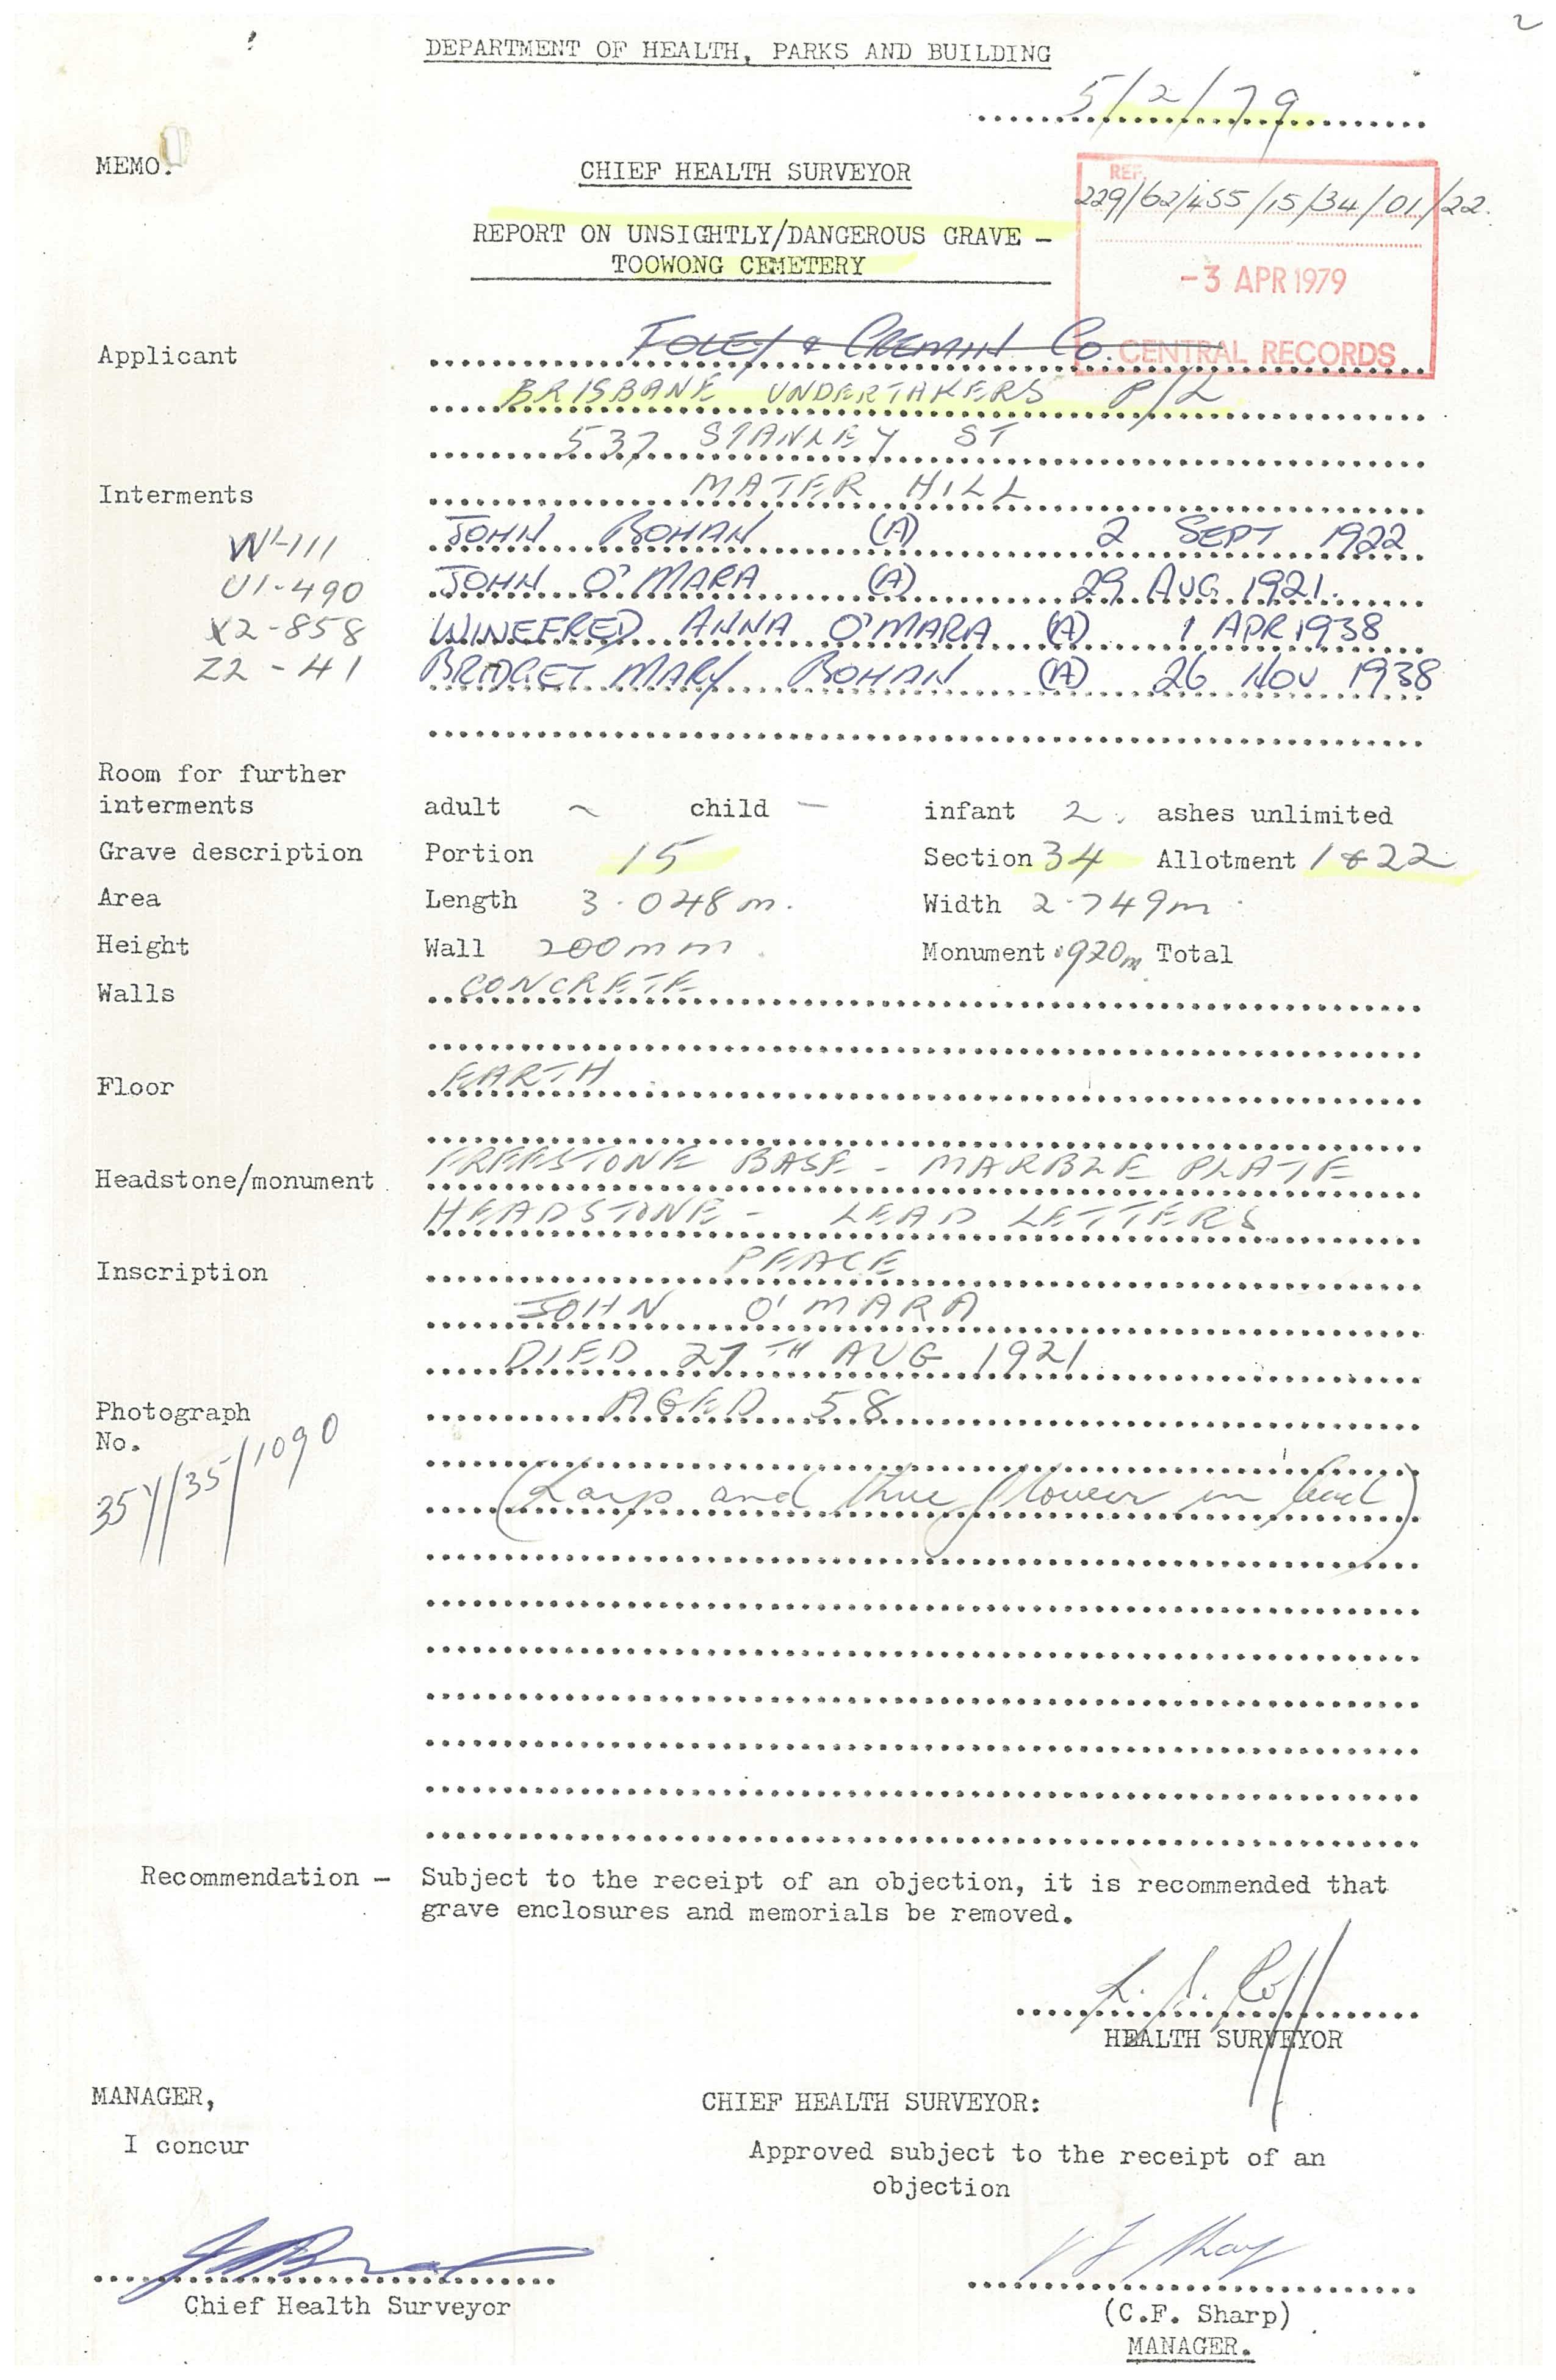 2
DEPARTMENT OF HEALTH, PARKS AND BUILDING
5/2/79
MEMO.
CHIEF HEALTH SURVEYOR
REF.
229/62/455/15/34/01/22.
REPORT ON UNSIGHTLY/DANGEROUS GRAVE -
TOOWONG CEMETERY
-3 APR 1979
CENTRAL RECORDS
Applicant FOLEY & CREMIN Co.
BRISBANE UNDERTAKERS P/L
537 STANLEY ST
Interments MATER HILL
W1-111 JOHN BOHAN (A) 2 SEPT 1922
U1-490 JOHN O'MARA (A) 29 AUG 1921.
X2-858 WINEFRED ANNA O'MARA (A) 1 APR 1938
Z2-41 BRIDGET MARY BOHAN (A) 26 NOV 1938
Room for further
interments adult ~ child - infant 2. ashes unlimited
Grave description Portion 15 Section 34 Allotment 1 & 22
Area Length 3.048 m. Width 2.749m
Height Wall 200mm. Monument .920m Total
Walls CONCRETE
Floor EARTH
Headstone/monument FREESTONE BASE - MARBLE PLATE
HEADSTONE - LEAD LETTERS
Inscription PEACE
JOHN O'MARA
DIED 27TH AUG 1921
Photograph AGED 58
No.
35Y/35/1090
(Harp and three flowers in lead)
Recommendation - Subject to the receipt of an objection, it is recommended that
grave enclosures and memorials be removed.
HEALTH SURVEYOR
MANAGER, CHIEF HEALTH SURVEYOR:
I concur Approved subject to the receipt of an
objection
Chief Health Surveyor (C.F. Sharp)
MANAGER.